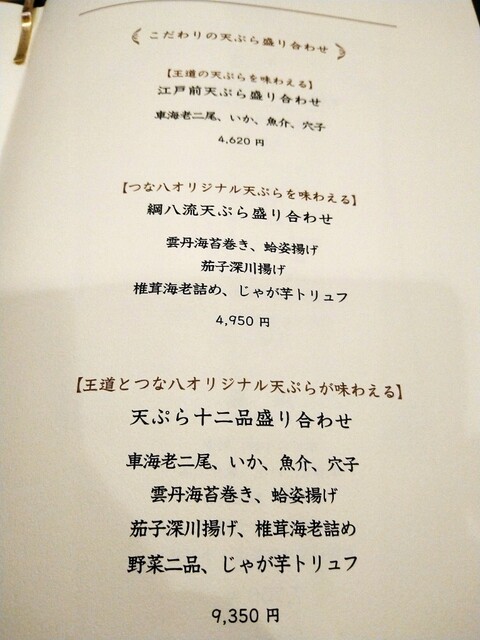 こだわりの天ぷら盛り合わせ
【王道の天ぷらを味わえる】
江戸前天ぷら盛り合わせ
車海老二尾、いか、魚介、穴子
4,620 円
【つな八オリジナル天ぷらを味わえる】
綱八流天ぷら盛り合わせ
雲丹海苔巻き、蛤姿揚げ
茄子深川揚げ
椎茸海老詰め、じゃが芋トリュフ
4,950 円
【王道とつな八オリジナル天ぷらが味わえる】
天ぷら十二品盛り合わせ
車海老二尾、いか、魚介、穴子
雲丹海苔巻き、蛤姿揚げ
茄子深川揚げ、椎茸海老詰め
野菜二品、じゃが芋トリュフ
9,350 円